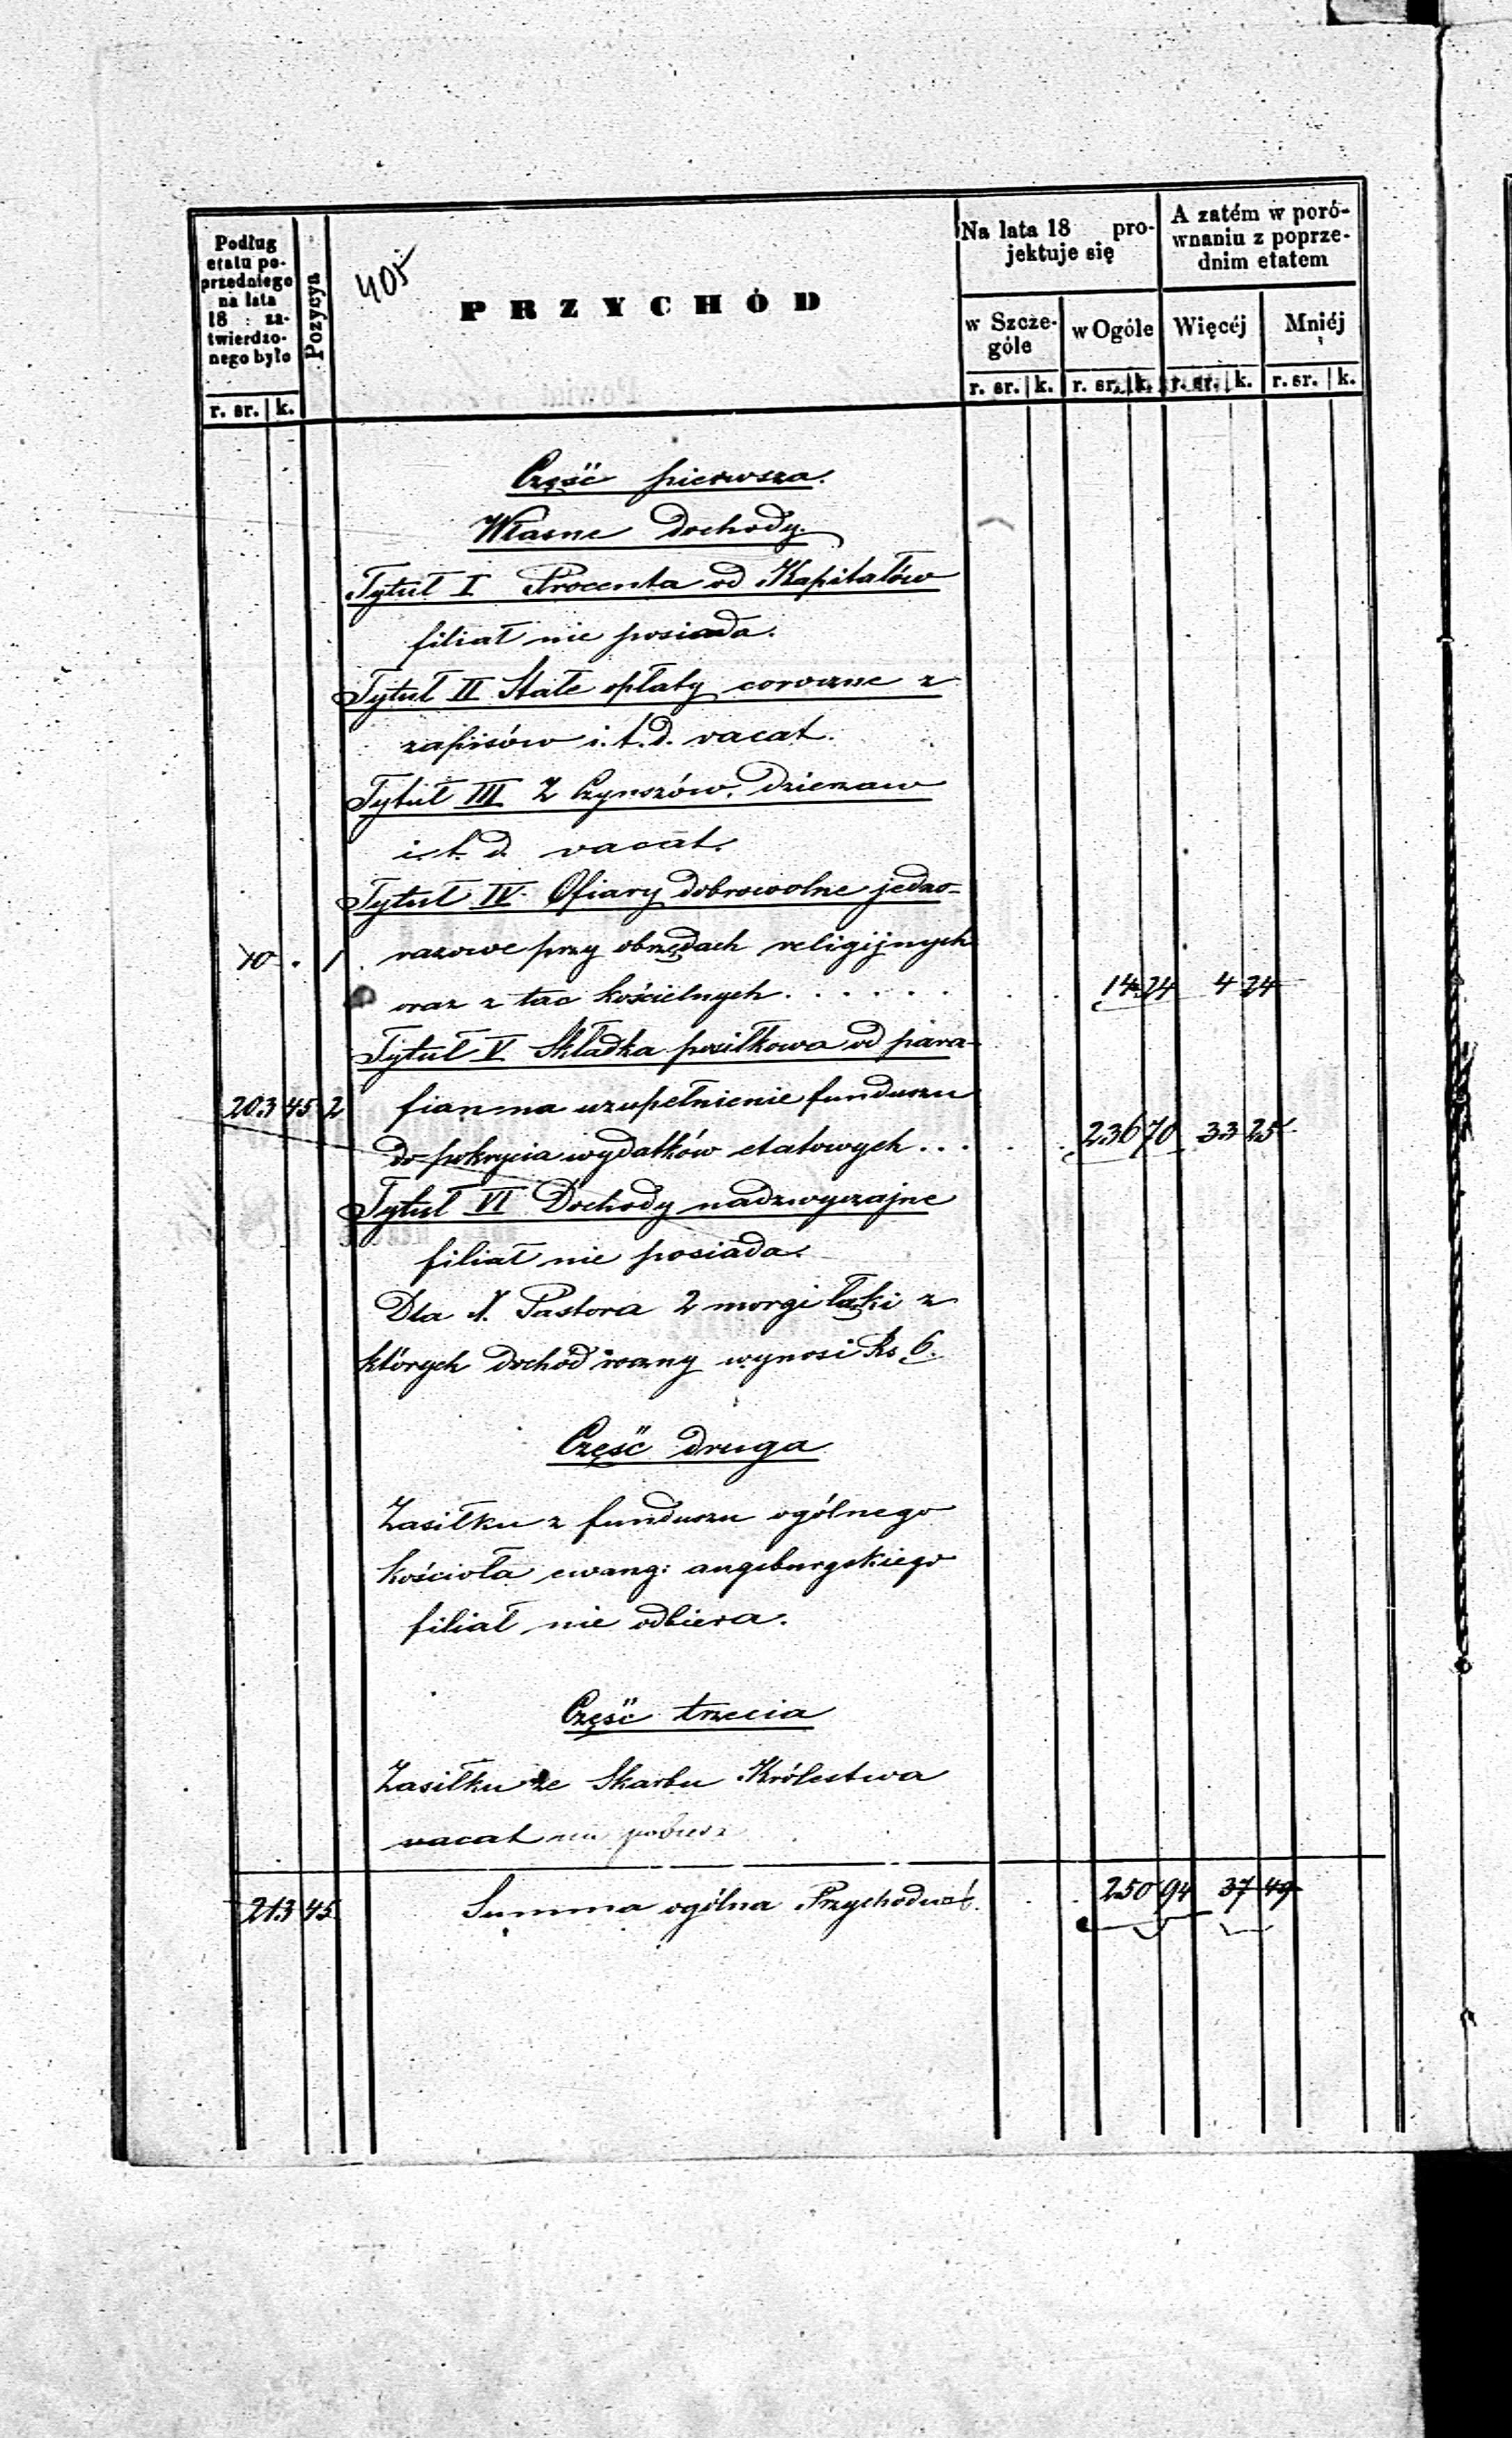 405
Podług
etatu po-
przedniego
na lata
18 za-
twierdzo-
nego było
r. sr. k.
Pozycya
PRZYCHÓD
Na lata 18 pro-
jektuje się
w Szcze-
góle
r. sr. k.
w Ogóle
r. sr. k.
A zatém w poró-
wnaniu z poprze-
dnim etatem
Więcéj
r. sr. k.
Mniéj
r. sr. k.
Część pierwsza.
Własne Dochody.
Tytuł I Procenta od Kapitałów
filiał nie posiada.
Tytuł II Stałe opłaty coroczne z
zapisów i.t.d. vacat.
Tytuł III Z Czynszów, Dzierzaw
i.t.d. vacat.
Tytuł IV. Ofiary dobrowolne jedno-
10 . 1 razowe przy obrzędach religijnych
oraz z tac kościelnych . . . . . . 14 24 4 24
Tytuł V Składka posiłkowa od para-
203 45 2 fian na uzupełnienie funduszu
do pokrycia wydatków etatowych . . . 236 70 33 25
Tytuł VI Dochody nadzwyczajne
filiał nie posiada.
Dla X. Pastora 2 morgi łąki z
których dochód roczny wynosi Rs 6.
Część druga
Zasiłku z funduszu ogólnego
kościoła ewang: augsburgskiego
filiał nie odbiera.
Część trzecia
Zasiłku ze Skarbu Królestwa
vacat nie pobiera
213 45 Summa ogólna Przychodu 250 94 37 49